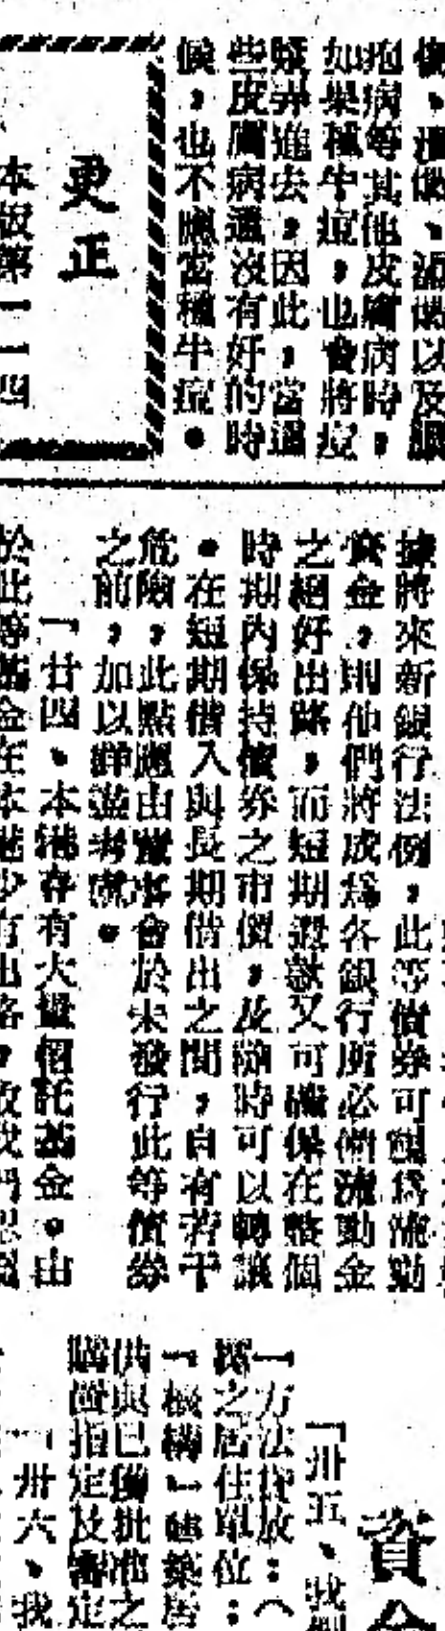 疱病等其他皮膚病時，
如果種牛痘，也會將痘
進去，因此，當這
些皮膚病還沒有好的時
候，也不應當種牛痘。
更正
本版第一一四
據將來新銀行法例，此等債券可視爲流動
資金，則他們將成爲各銀行所必備流動金
之絕好出路，而短期還款又可確保在整個
時期內保持債券之市價，及隨時可以轉讓
。在短期借入與長期借出之間，自有若干
危險，此點應由當會於未發行此等債券
之前，加以詳盡考慮。
「廿四、本港存有大量信託基金。由
於此等基金在本港少有出路，故我們
資金
「卅五、我們
一方法貸放：（
築之居住單位：
「機構」建築居
供與已獲批准之
購置指定及審定
「卅六、我